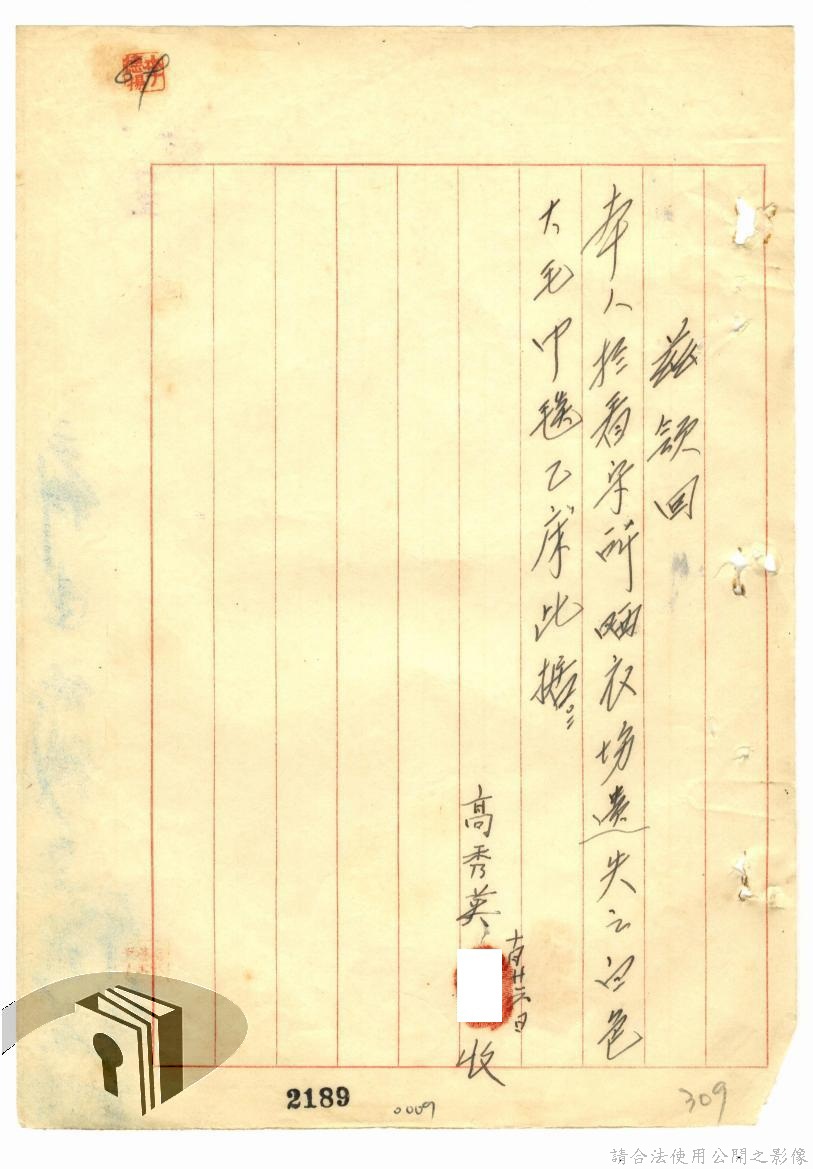 茲領回
本人於看守所晒衣場遺失之白色
大毛巾毯乙床此據。
高秀英 收
十月廿六日
2189
0009
309
請合法使用公開之影像